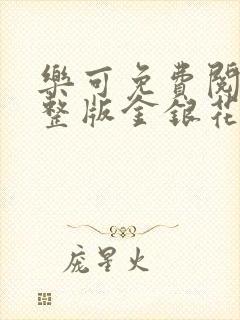 樂可免費閱
整版金銀花
庞星火